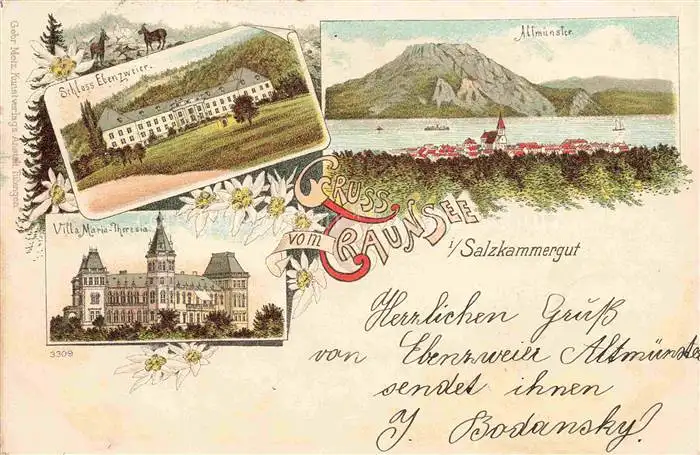 Gebr. Metz, Kunstverlags-Anstalt, Tübingen.
Schloss Ebenzweier.
Altmünster.
Gruss
vom Traunsee
i/Salzkammergut
Villa Maria-Theresia.
3309
Herzlichen Gruß
von Ebenzweier Altmünster
sendet ihnen
J. Bodansky.